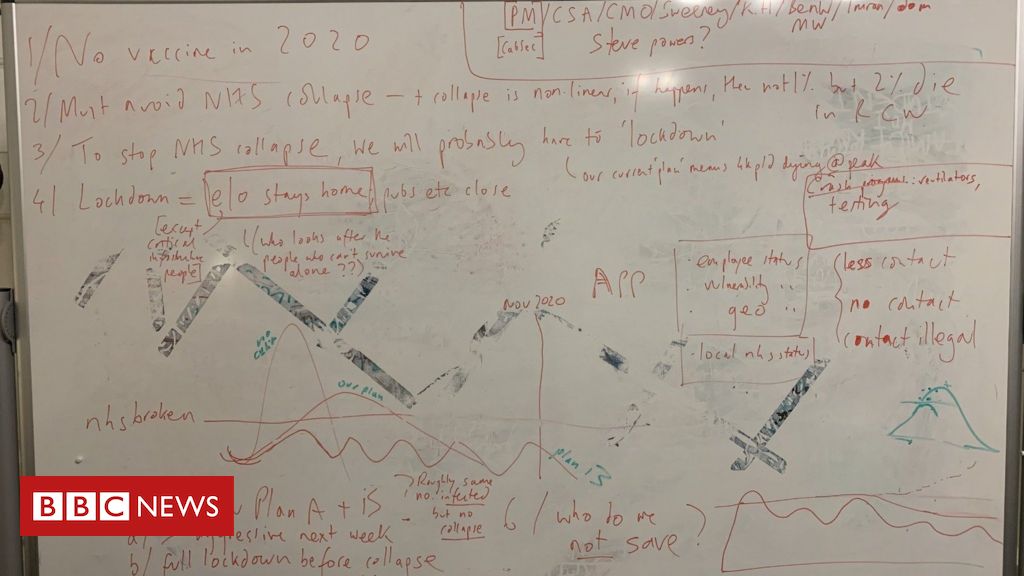 PM/CSA/CMO/Sweeney/K.H/BenW/Imran/dom
MW
[Cabsec]
Steve powers?
1/ No vaccine in 2020
2/ Must avoid NHS collapse – + collapse is non-linear, if happens, then not 1% but 2% die
in RCW
3/ To stop NHS collapse, we will probably have to 'lockdown'
our current 'plan' means 4k p/d dying @ peak
4/ Lockdown = e/o stays home, pubs etc close
Crash programs: ventilators,
testing
[except
critical
people]
((who looks after the
people who can't survive
alone??)
APP
· employee status
· vulnerability "
· geo "
· local nhs status
less contact
no contact
contact illegal
Nov 2020
our plan
nhs broken
plan iB
BBC NEWS
Plan A + iS
Roughly same
no. infected
but no
collapse
a/ aggressive next week
b/ full lockdown before collapse
6/ who do we
not save?